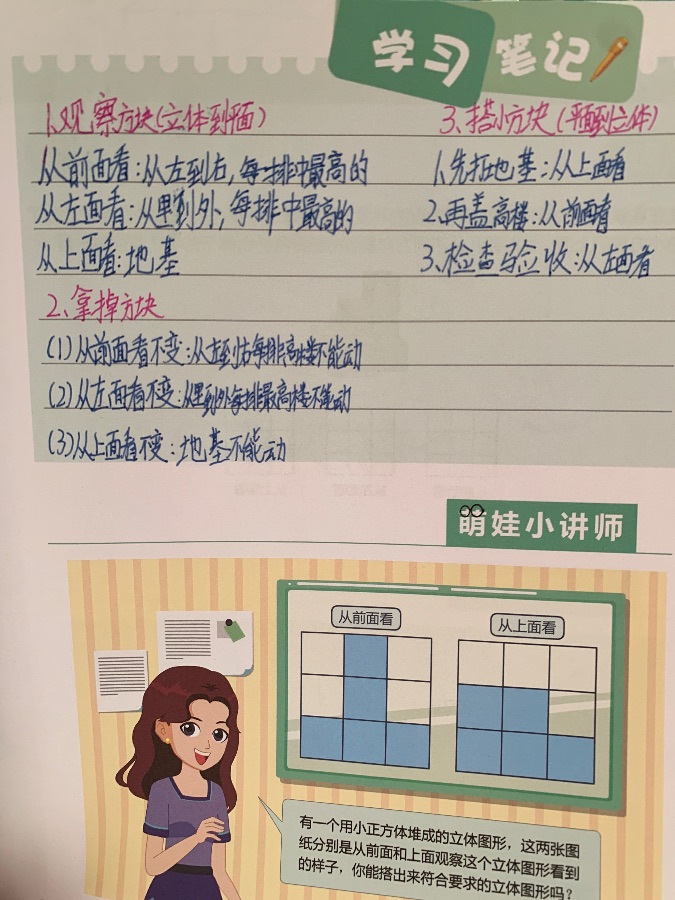 学习笔记
1.观察方块(立体到平面)
从前面看:从左到右,每排中最高的
从左面看:从里到外,每排中最高的
从上面看:地基
2.拿掉方块
(1)从前面看不变:从左到右每排高楼不能动
(2)从左面看不变:从里到外每排最高楼不能动
(3)从上面看不变:地基不能动
3.搭小方块(平面到立体)
1.先打地基:从上面看
2.再盖高楼:从前面看
3.检查验收:从左面看
萌娃小讲师
从前面看
从上面看
有一个用小正方体堆成的立体图形,这两张图
纸分别是从前面和上面观察这个立体图形看到
的样子,你能搭出来符合要求的立体图形吗?